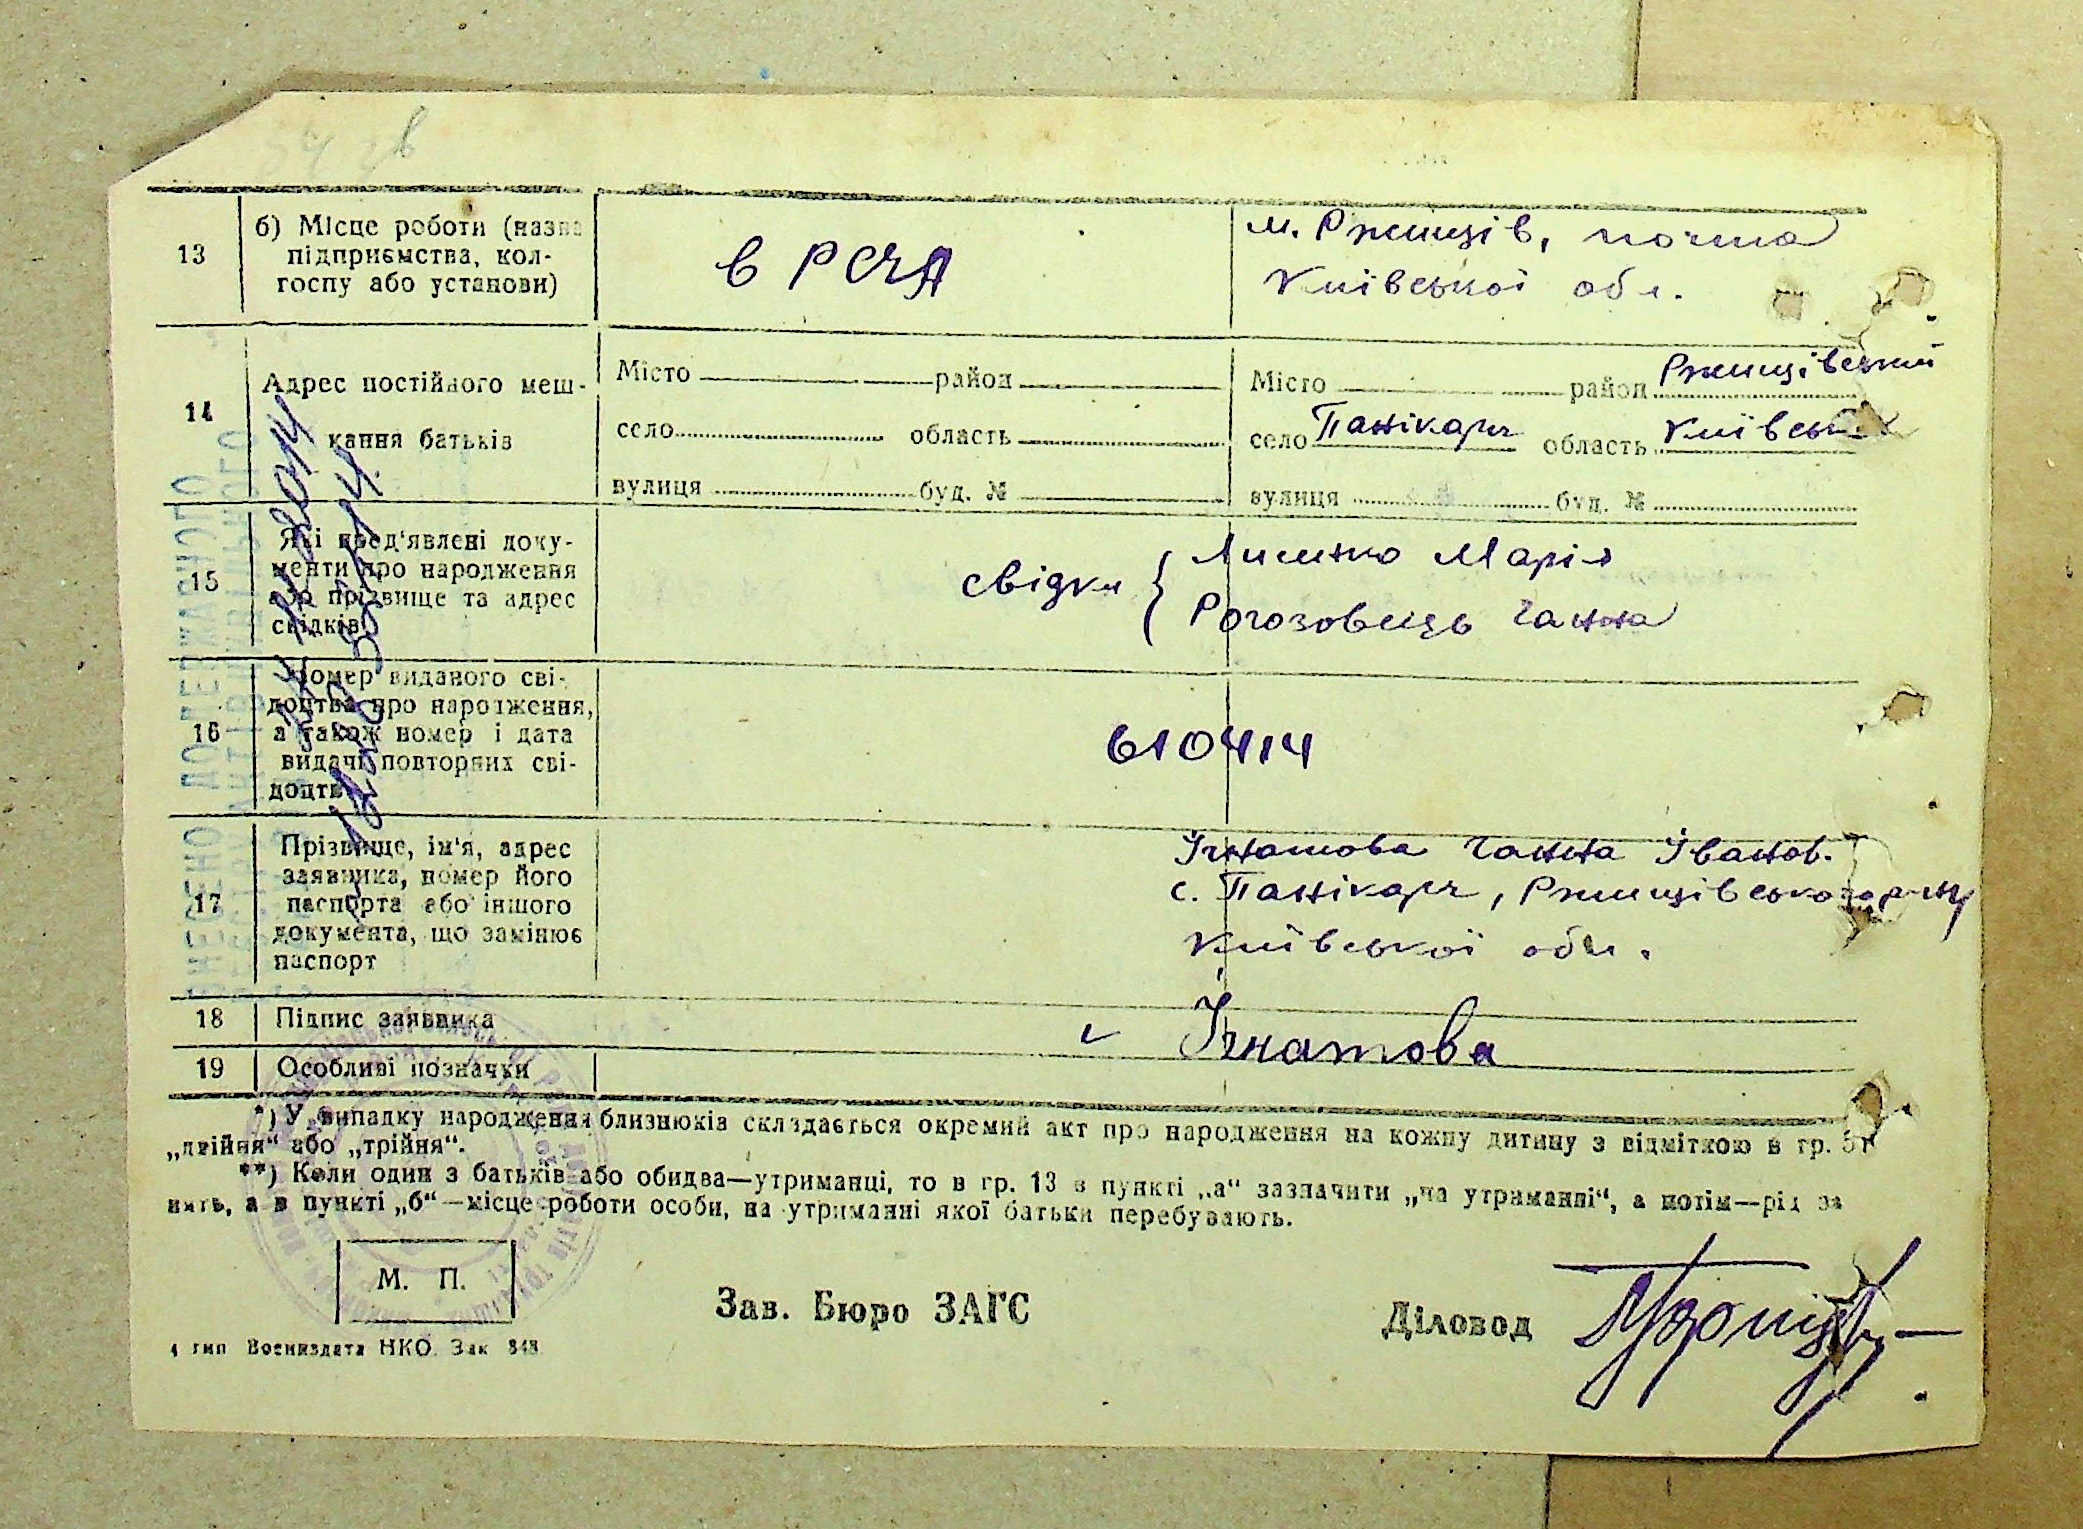 13
б) Місце роботи (назва
підприємства, кол-
госпу або установи)
в РСЧА
м. Ржищів, почта
Київської обл.
14
Адрес постійного меш-
кання батьків
Місто район
село область
вулиця буд. №
Місто район Ржищівський
село Панікарч область Київськ
вулиця буд. №
15
Які пред'явлені доку-
менти про народження
або прізвище та адрес
свідків
свідки { Лисенко Марія
Рогозовець Ганна
16
Номер виданого сві-
доцтва про народження,
а також номер і дата
видачі повторних сві-
доцтв
610414
17
Прізвище, ім'я, адрес
заявника, номер його
паспорта або іншого
документа, що замінює
паспорт
Ігнатова Ганна Іванов.
с. Панікарч, Ржищівського р-ну
Київської обл.
18
Підпис заявника
Ігнатова
19
Особливі позначки
*) У випадку народження близнюків складається окремий акт про народження на кожну дитину з відміткою в гр. 5
„двійня“ або „трійня“.
**) Коли один з батьків або обидва—утриманці, то в гр. 13 в пункті „а“ зазначити „на утриманні“, а потім—рід за
нять, а в пункті „б“—місце роботи особи, на утриманні якої батьки перебувають.
М. П.
Зав. Бюро ЗАГС
Діловод
4 тип Воениздата НКО. Зак 848
ВНЕСЕНО ДО ДЕРЖАВНОГО